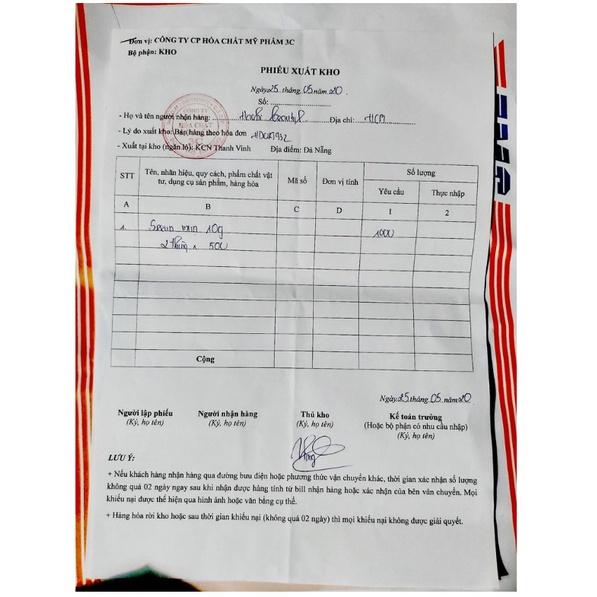 Đơn vị: CÔNG TY CP HÓA CHẤT MỸ PHẨM 3C
Bộ phận: KHO
PHIẾU XUẤT KHO
Ngày 25 tháng 05 năm 20
Số:
- Họ và tên người nhận hàng: Địa chỉ: HCM
- Lý do xuất kho: Bán hàng theo hóa đơn
- Xuất tại kho (ngăn lô): KCN Thanh Vinh Địa điểm: Đà Nẵng
STT Tên, nhãn hiệu, quy cách, phẩm chất vật tư, dụng cụ sản phẩm, hàng hóa Mã số Đơn vị tính Số lượng
Yêu cầu Thực nhập
A B C D 1 2
1 10g 1000
2 thùng x 500
Cộng
Ngày 25 tháng 05 năm 20
Người lập phiếu Người nhận hàng Thủ kho Kế toán trưởng
(Ký, họ tên) (Ký, họ tên) (Ký, họ tên) (Hoặc bộ phận có nhu cầu nhập)
(Ký, họ tên)
LƯU Ý:
+ Nếu khách hàng nhận hàng qua đường bưu điện hoặc phương thức vận chuyển khác, thời gian xác nhận số lượng
không quá 02 ngày ngay sau khi nhận được hàng tính từ bill nhận hàng hoặc xác nhận của bên vân chuyển. Mọi
khiếu nại được thể hiện qua hình ảnh hoặc văn bằng cụ thể.
+ Hàng hóa rời kho hoặc sau thời gian khiếu nại (không quá 02 ngày) thì mọi khiếu nại không được giải quyết.